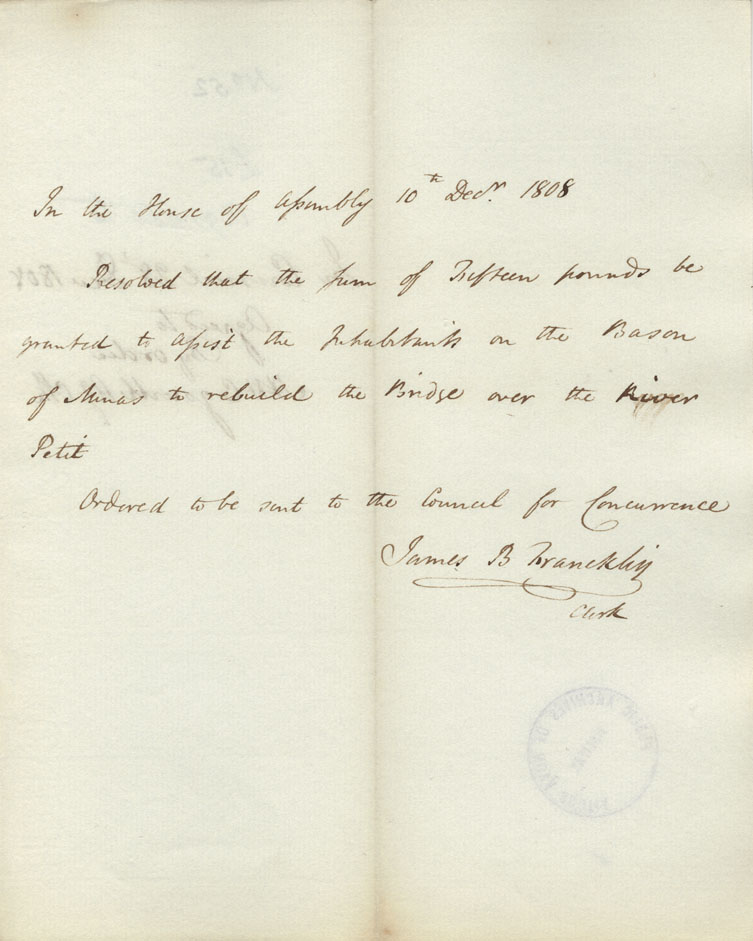 In the House of Assembly 10th Decr. 1808
Resolved that the sum of Fifteen pounds be
granted to assist the Inhabitants on the Bason
of Minas to rebuild the Bridge over the River
Petit
Ordered to be sent to the Council for Concurrence
James B Francklin
Clerk